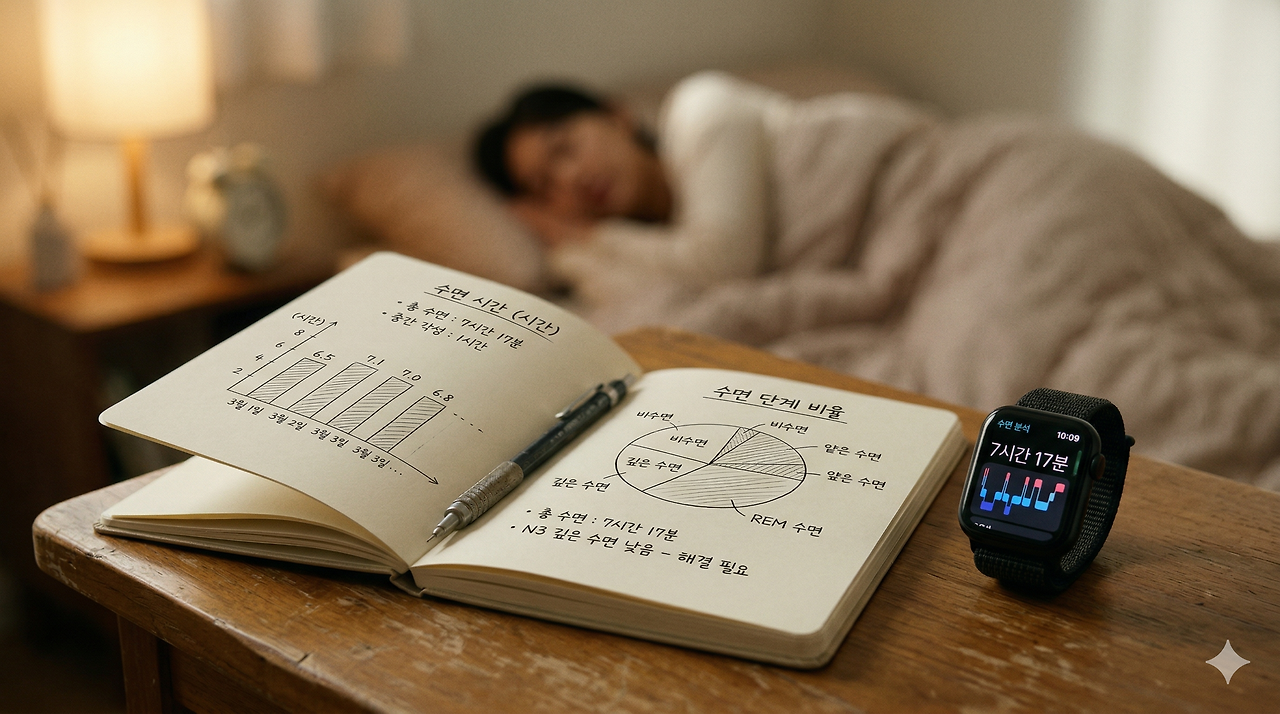 수면 시간 (시간)
• 총 수면 : 7시간 17분
• 중간 각성 : 1시간
(시간)
8
6
4
2
6.5
7.1
7.0
6.8
3월 1일 3월 2일 3월 3일 3월 3일...
수면 단계 비율
비수면
비수면
비수면
얕은 수면
얕은 수면
깊은 수면
깊은 수면
REM 수면
• 총 수면 : 7시간 17분
• N3 깊은 수면 낮음 – 해결 필요
수면 분석
10:09
7시간 17분